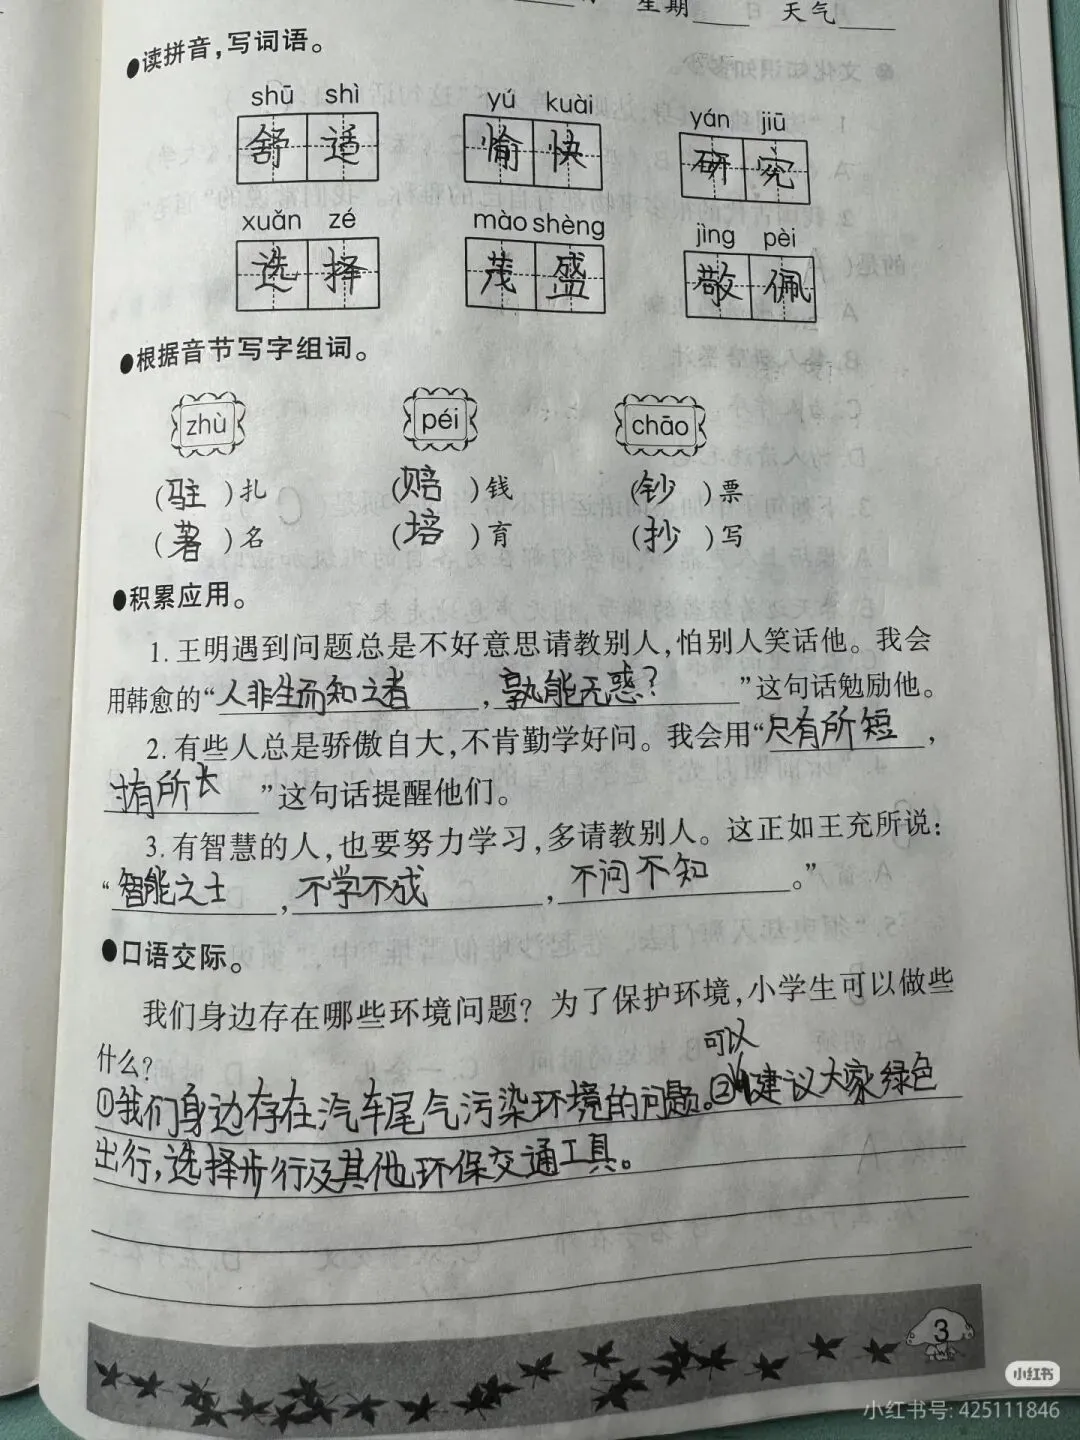 星期____ 天气____
●读拼音,写词语。
shū shì yú kuài yán jiū
舒适 愉快 研究
xuǎn zé mào shèng jìng pèi
选择 茂盛 敬佩
●根据音节写字组词。
zhù péi chāo
(驻)扎 (赔)钱 (钞)票
(著)名 (培)育 (抄)写
●积累应用。
1.王明遇到问题总是不好意思请教别人,怕别人笑话他。我会
用韩愈的“人非生而知之者,孰能无惑?”这句话勉励他。
2.有些人总是骄傲自大,不肯勤学好问。我会用“尺有所短,
寸有所长”这句话提醒他们。
3.有智慧的人,也要努力学习,多请教别人。这正如王充所说:
“智能之士,不学不成,不问不知。”
●口语交际。
我们身边存在哪些环境问题?为了保护环境,小学生可以做些
什么?
可以
①我们身边存在汽车尾气污染环境的问题。②建议大家绿色
出行,选择步行及其他环保交通工具。
3
小红书
小红书号: 425111846